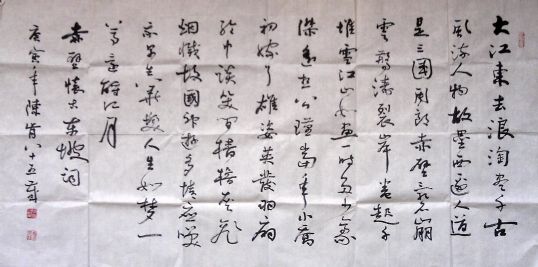 大江東去浪淘尽千古
風流人物故壘西邊人道
是三國周郎赤壁亂石崩
雲驚濤裂岸卷起千
堆雪江山如画一時多少豪
傑遥想公瑾當年小喬
初嫁了雄姿英發羽扇
綸巾談笑間檣櫓灰飛
烟滅故國神游多情應笑
我早生華髮人生如夢一
尊還酹江月
赤壁懷古東坡詞
庚寅年陳八十五歲